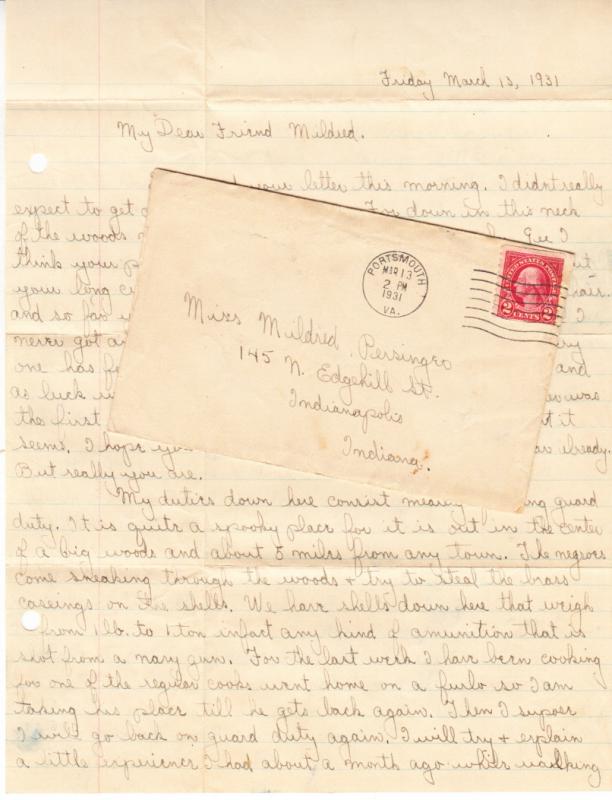 Friday March 13, 1931
My Dear Friend Mildred.
your letter this morning. I didnt really
expect to get For down in this neck
of the woods Gee I
think your p
your long c hair.
and so far I
never got a
one has f and
as luck was
the first it
seems. I hope you already.
But really you are.
My duties down here consist guard
duty. It is quite a spooky place for it is out in the center
of a big woods and about 5 miles from any town. The negroes
come sneaking through the woods & try to steal the brass
caseings on the shells. We have shells down here that weigh
from 1 lb. to 1 ton infact any kind of amunition that is
shot from a navy gun. For the last week I have been cooking
for one of the regular cooks went home on a furlo so I am
taking his place till he gets back again. Then I supose
I will go back on guard duty again. I will try & explain
a little experience I had about a month ago while walking
PORTSMOUTH
MAR 13
2 PM
1931
VA.
UNITED STATES POSTAGE
2 CENTS 2
Miss Mildred Persinger
145 N. Edgehill St.
Indianapolis
Indiana.